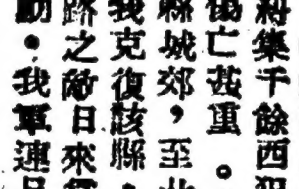 糾集千餘西犯
傷亡甚重。
縣城郊，至
我克復該縣，
路之敵日來
動。我軍連日